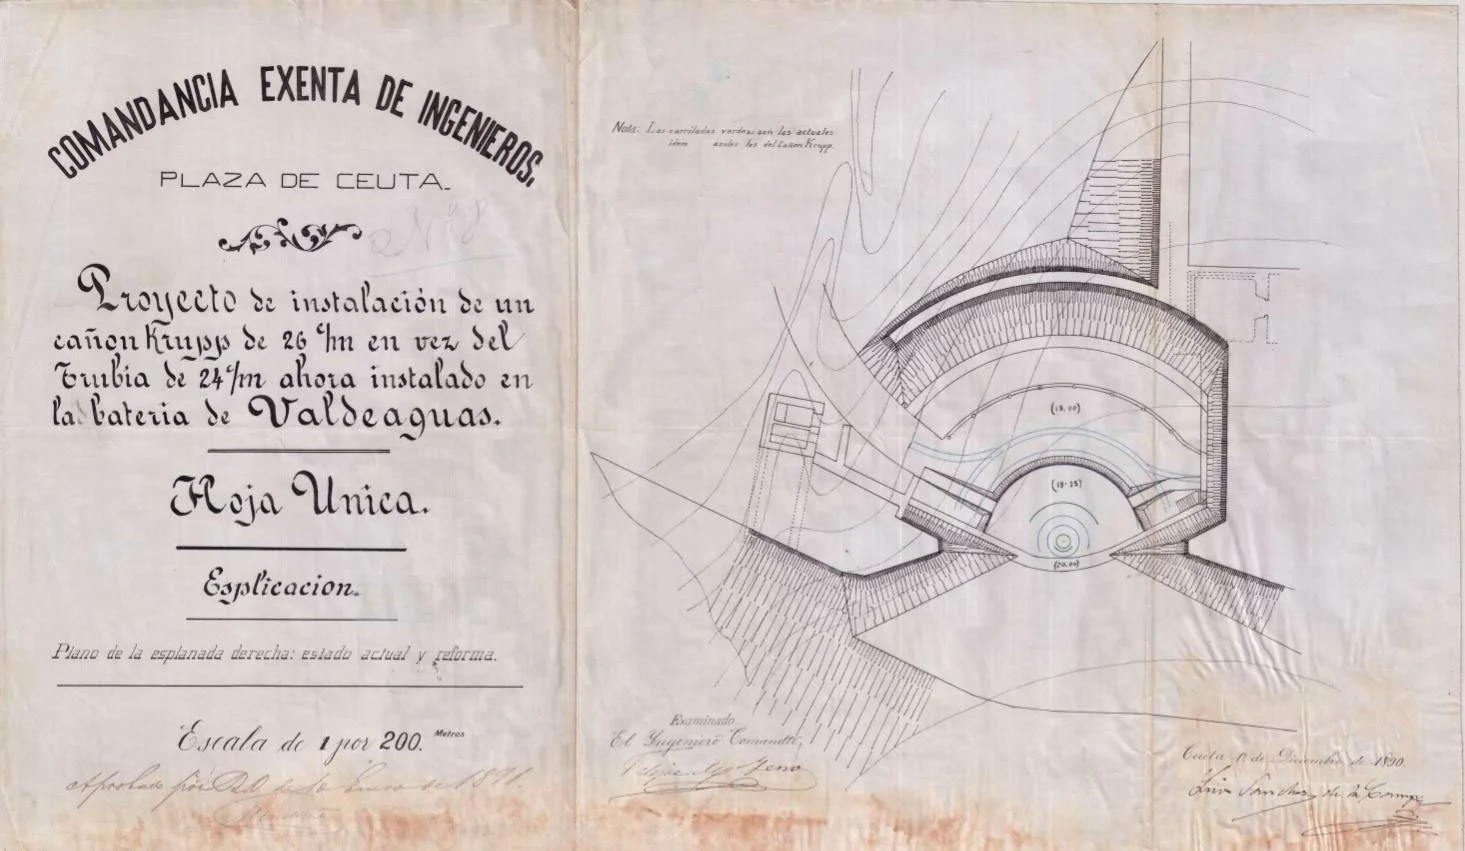 COMANDANCIA EXENTA DE INGENIEROS.
PLAZA DE CEUTA.
Nº 8
Proyecto de instalación de un
cañon Krupp de 26 c/m en vez del
Trubia de 24 c/m ahora instalado en
la bateria de Valdeaguas.
Hoja Unica.
Esplicacion.
Plano de la esplanada derecha: estado actual y reforma.
Escala de 1 por 200. Metros
Aprobado por R.O. de 10 Enero de 1891.
Nota: Las carriladas verdes son las actuales.
idem azules las del Cañon Krupp.
(18.00)
(18.25)
(20.00)
Examinado
El Yngeniero Comandte,
Ceuta 1º de Diciembre de 1890.
Luis Sanchez de la Campa